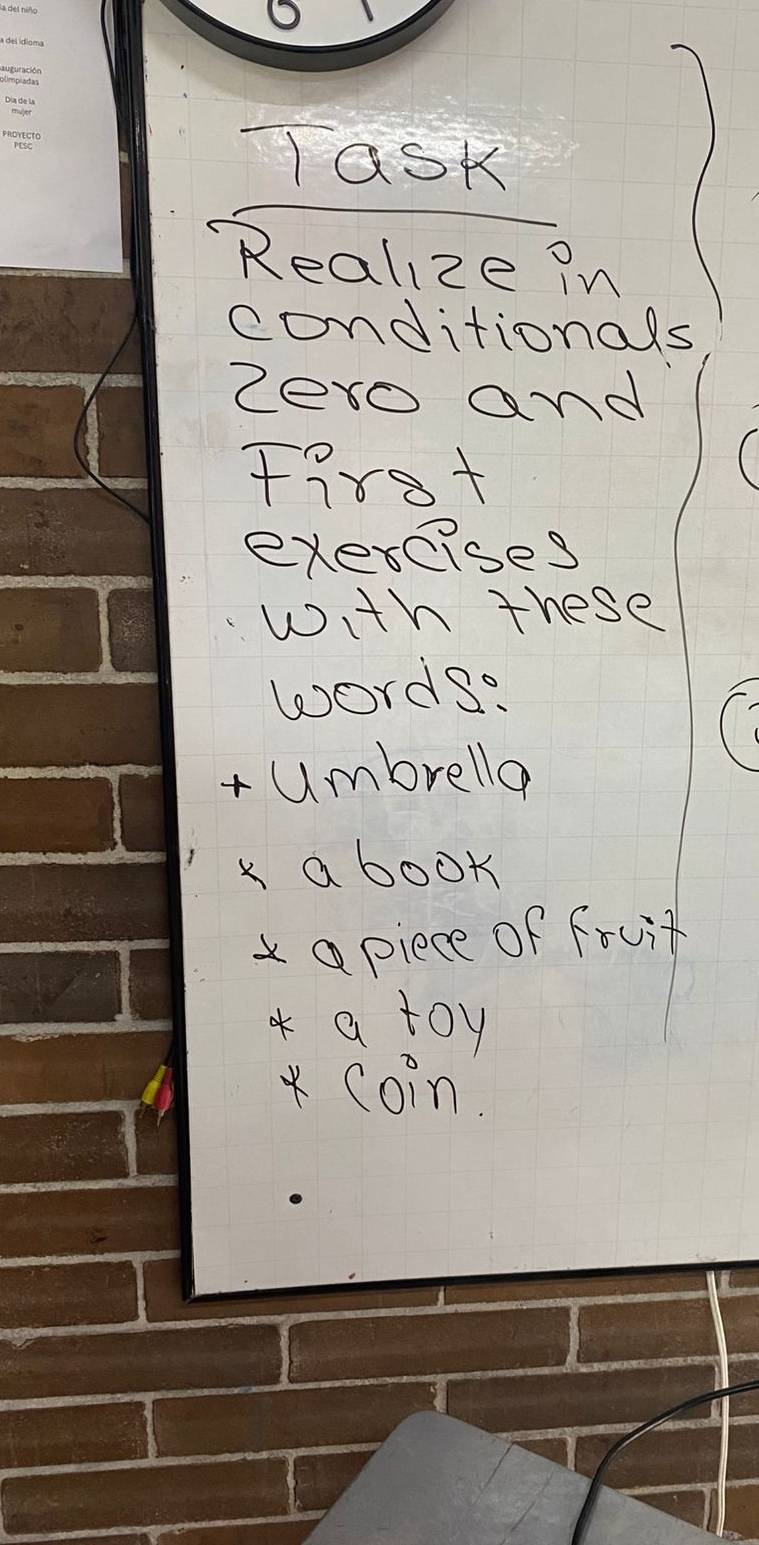 ía del niño
a del idioma
auguración
olimpiadas
Día de la
mujer
PROYECTO
PESC
Task
Realize in
conditionals
zero and
First
exercises
with these
words:
+ Umbrella
* a book
* a piece of fruit
* a toy
* Coin.